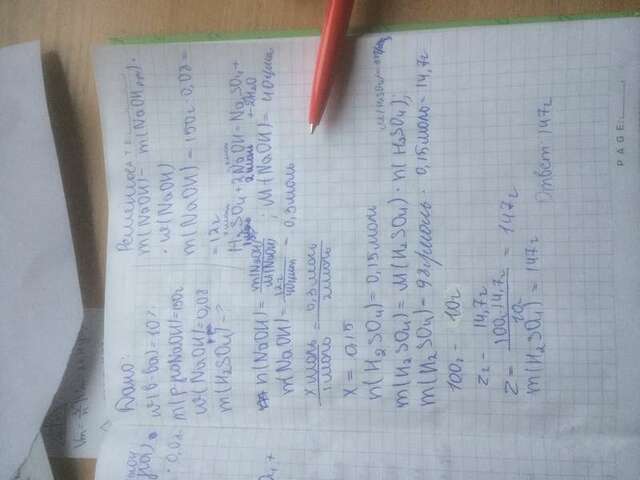 Дано:
w(в-ва)=10%
m(р-раNaOH)=150г
w(NaOH)=0,08
m(H₂SO₄)-?
Решение:
m(NaOH)=m(NaOH)·
·w(NaOH)
m(NaOH)=150г·0,08=
=12г
H₂SO₄+2NaOH=Na₂SO₄+
+2H₂O
n(NaOH)=m(NaOH)/M(NaOH); M(NaOH)=40г/моль
n(NaOH)=12г/40г/моль=0,3моль
x моль/1моль=0,3моль/2моль
x=0,15
n(H₂SO₄)=0,15моль
m(H₂SO₄)=M(H₂SO₄)·n(H₂SO₄);
m(H₂SO₄)=98г/моль·0,15моль=14,7г
100г-10г
Zг-14,7г
Z=100·14,7г/10г=147г
m(H₂SO₄)=147г
Ответ 147г
PAGE: